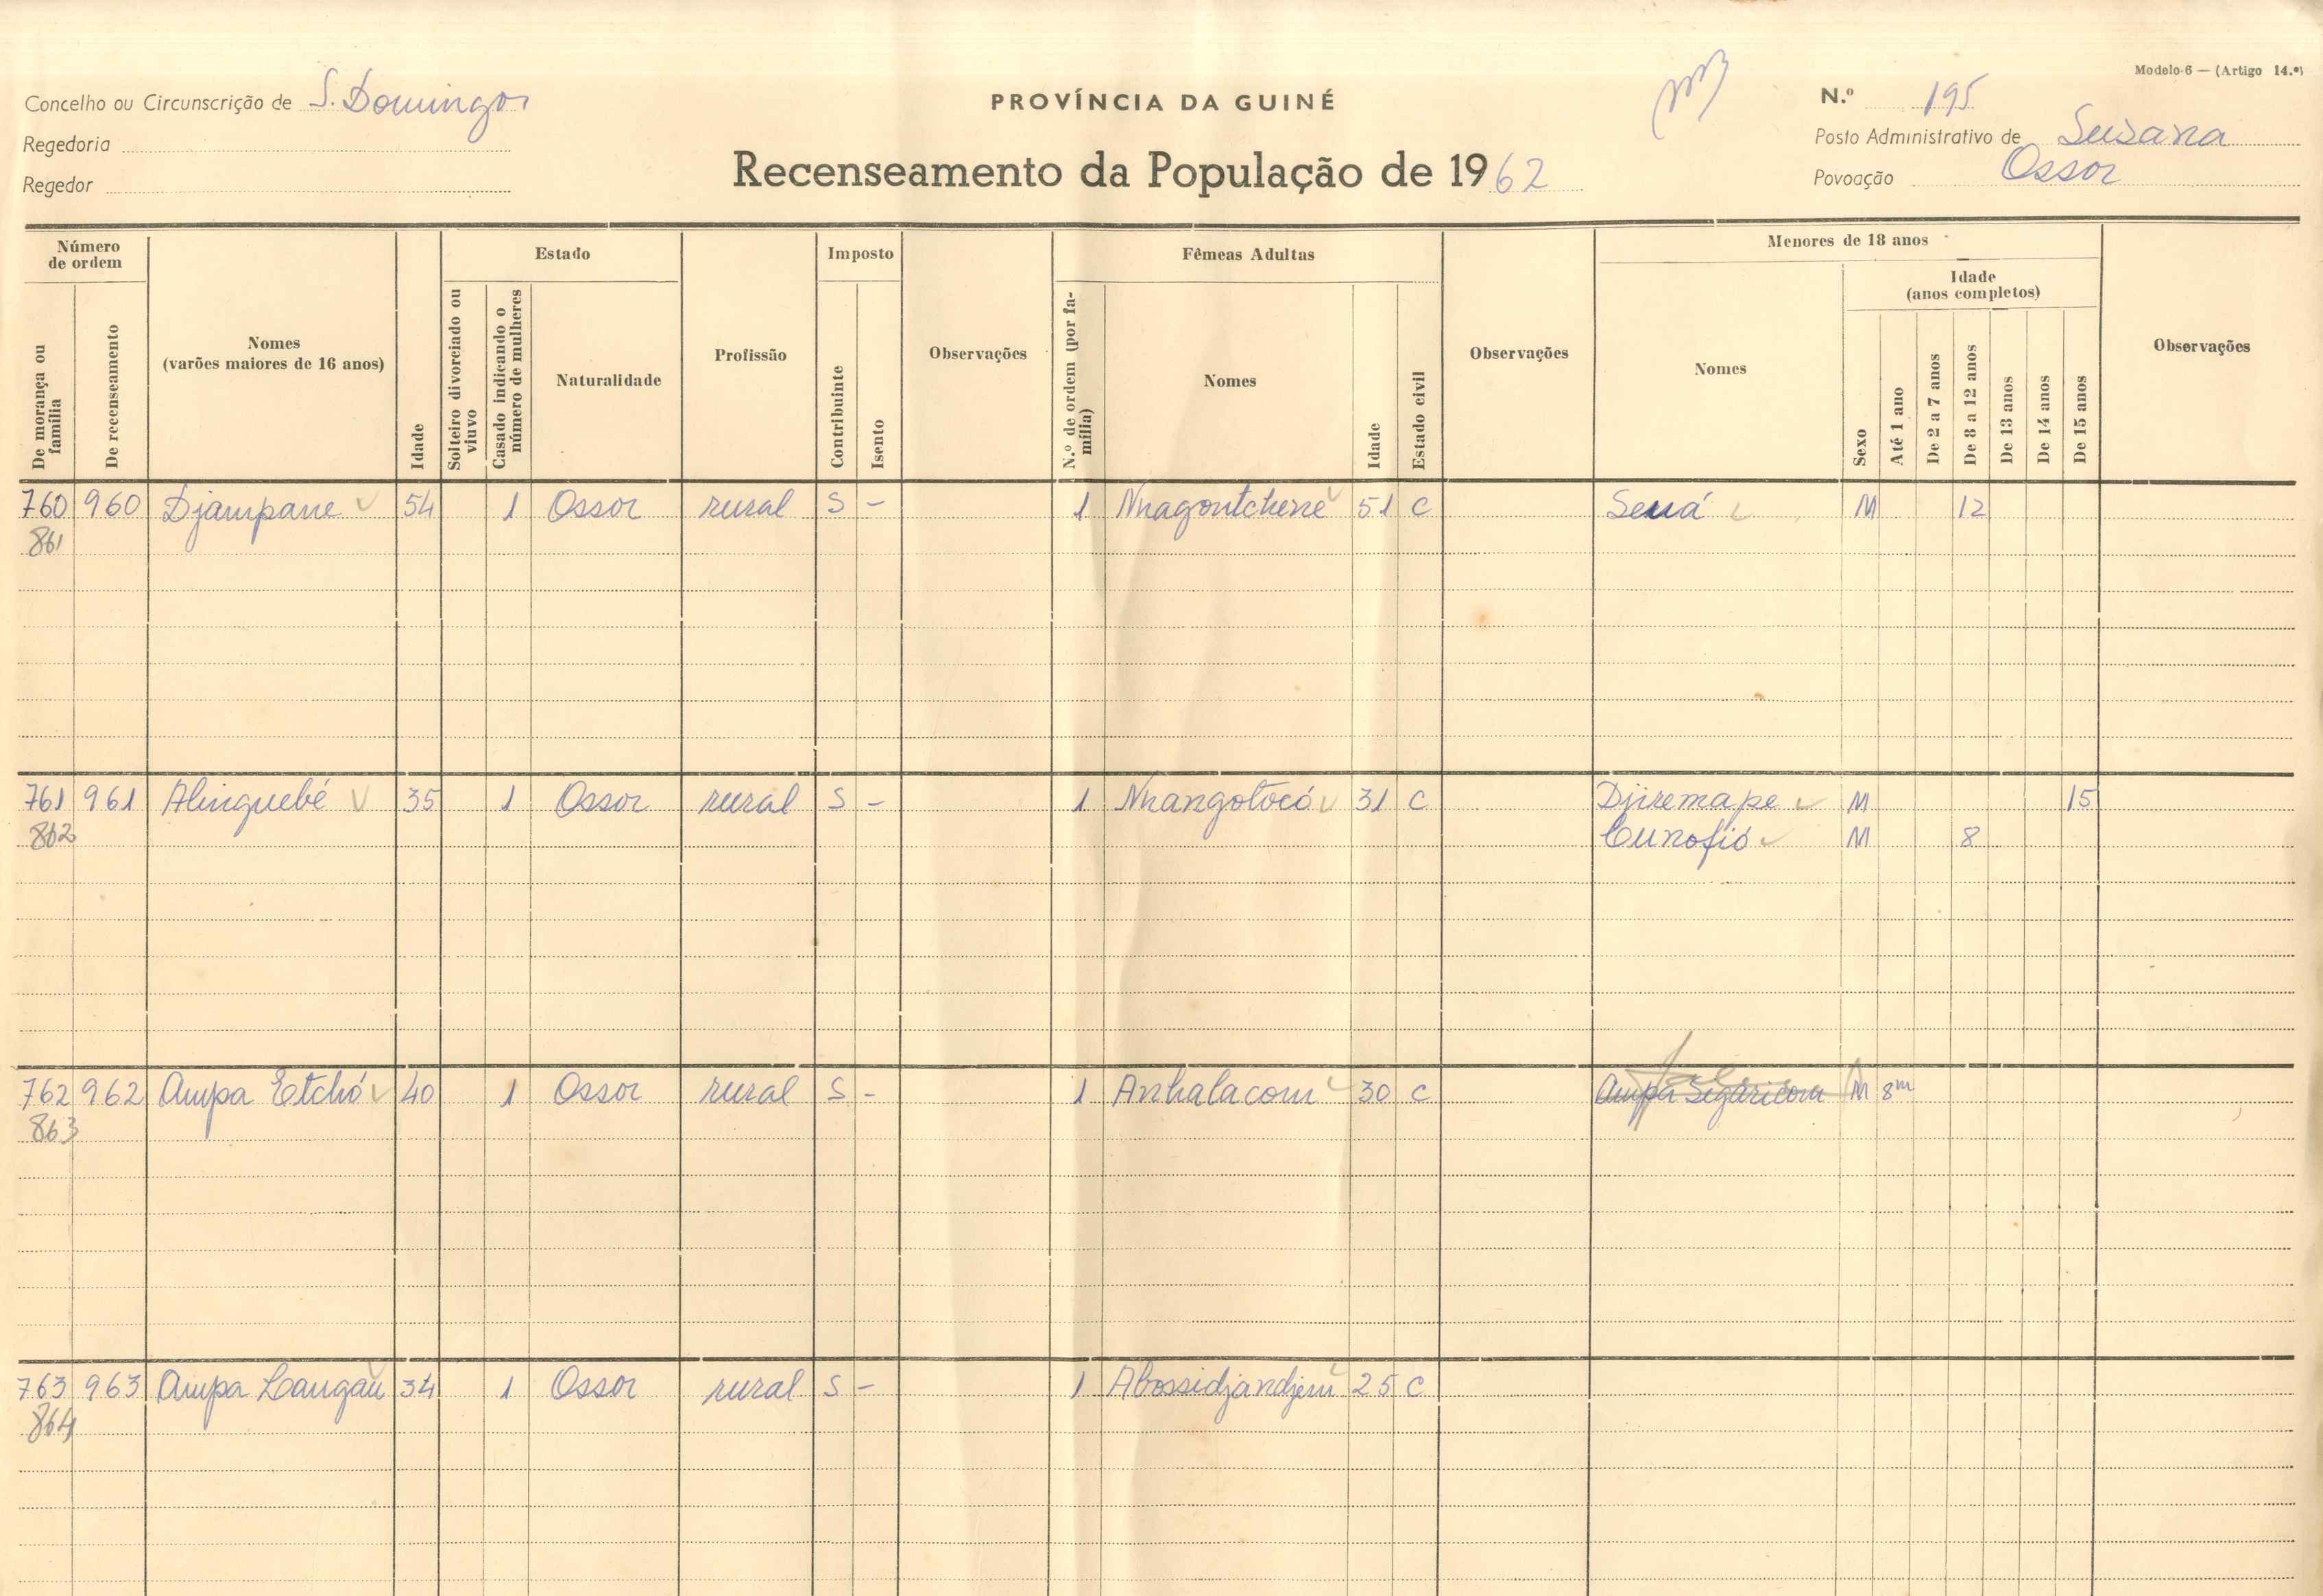 Modelo 6 — (Artigo 14.º)
Concelho ou Circunscrição de S. Domingos
PROVÍNCIA DA GUINÉ
N.º 195
Regedoria
Posto Administrativo de Susana
Regedor
Recenseamento da População de 1962
Povoação Ossor
Número de ordem
De morança ou família
De recenseamento
Nomes
(varões maiores de 16 anos)
Idade
Estado
Solteiro divorciado ou viuvo
Casado indicando o número de mulheres
Naturalidade
Profissão
Imposto
Contribuinte
Isento
Observações
Fêmeas Adultas
N.º de ordem (por família)
Nomes
Idade
Estado civil
Observações
Menores de 18 anos
Nomes
Sexo
Idade
(anos completos)
Até 1 ano
De 2 a 7 anos
De 8 a 12 anos
De 13 anos
De 14 anos
De 15 anos
Observações
760 960 Djampane 54 1 Ossor rural S - 1 Nhagontchene 51 C Sená M 12
861
761 961 Alinguebé 35 1 Ossor rural S - 1 Nhangotocó 31 C Djiremape M 15
862 Cunofió M 8
762 962 Ampa Etchó 40 1 Ossor rural S - 1 Anhalacom 30 C Ampa M 8m
863
763 963 Ampa Langau 34 1 Ossor rural S - 1 Abossidjandjem 25 C
864